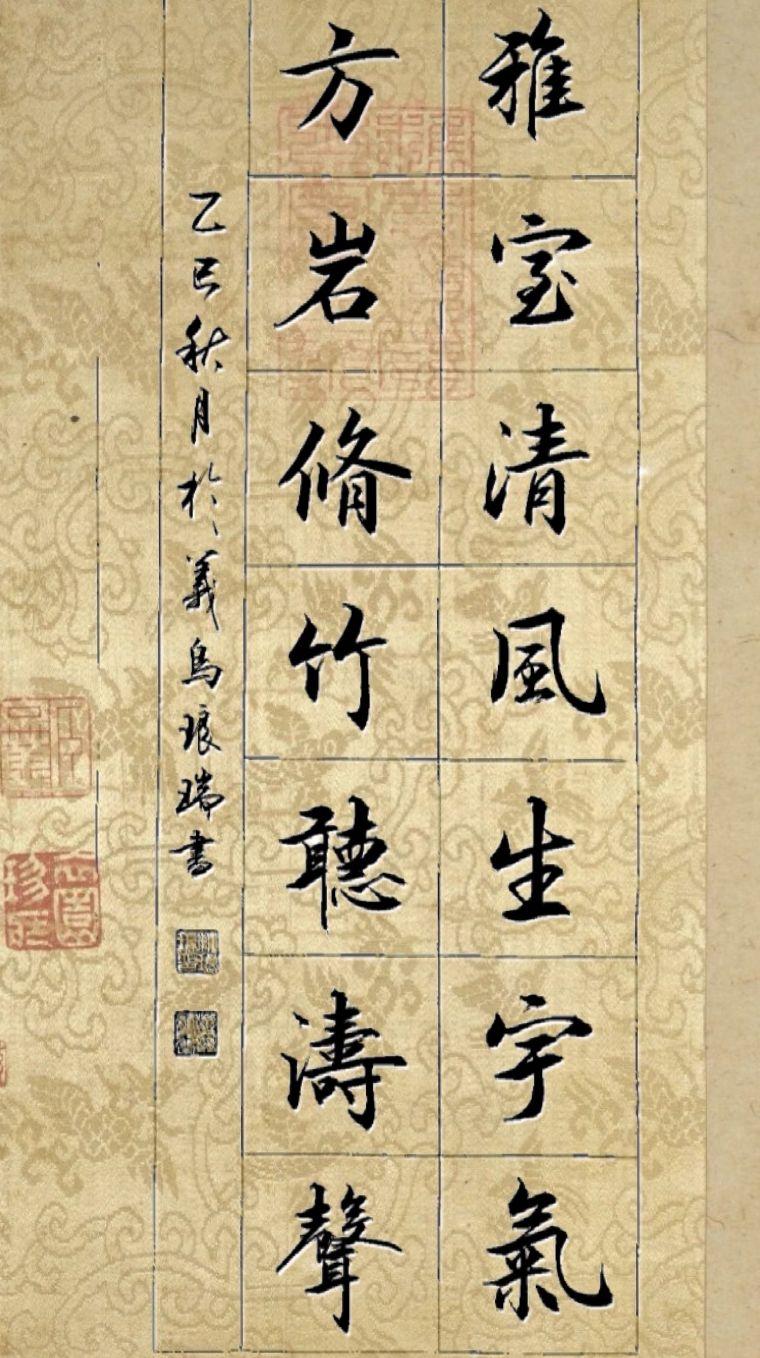 雅室清風生宇氣
方岩脩竹聽濤聲
乙巳秋月於義烏琅瑞書